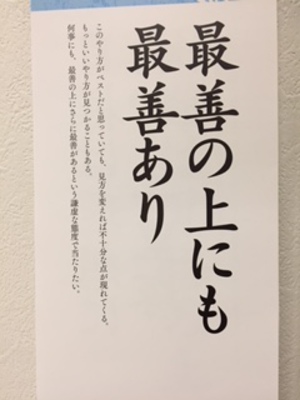 最善の上にも
最善あり
このやり方がベストだと思っていても、見方を変えれば不十分な点が現れてくる。
もっといいやり方が見つかることもある。
何事にも、最善の上にさらに最善があるという謙虚な態度で当たりたい。